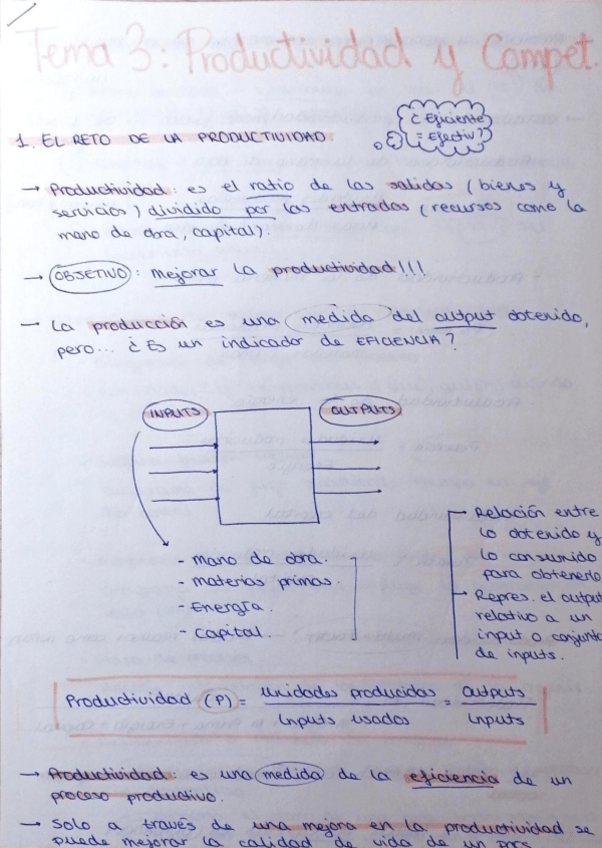 Tema 3: Productividad y Compet.
¿Eficiente
= Efectiv?
1. EL RETO DE LA PRODUCTIVIDAD.
→ Productividad: es el ratio de las salidas (bienes y
servicios) dividido por las entradas (recursos como la
mano de obra, capital).
→ OBJETIVO: Mejorar la productividad!!!
→ La producción es una medida del output obtenido,
pero... ¿Es un indicador de EFICIENCIA?
INPUTS
OUTPUTS
- mano de obra.
- materias primas.
- Energía.
- Capital.
→ Relación entre
lo obtenido y
lo consumido
para obtenerlo
→ Repres. el output
relativo a un
input o conjunto
de inputs.
Productividad (P) = Unidades producidas / Inputs usados = Outputs / Inputs
→ Productividad: es una medida de la eficiencia de un
proceso productivo.
→ Solo a través de una mejora en la productividad se
puede mejorar la calidad de vida de un país